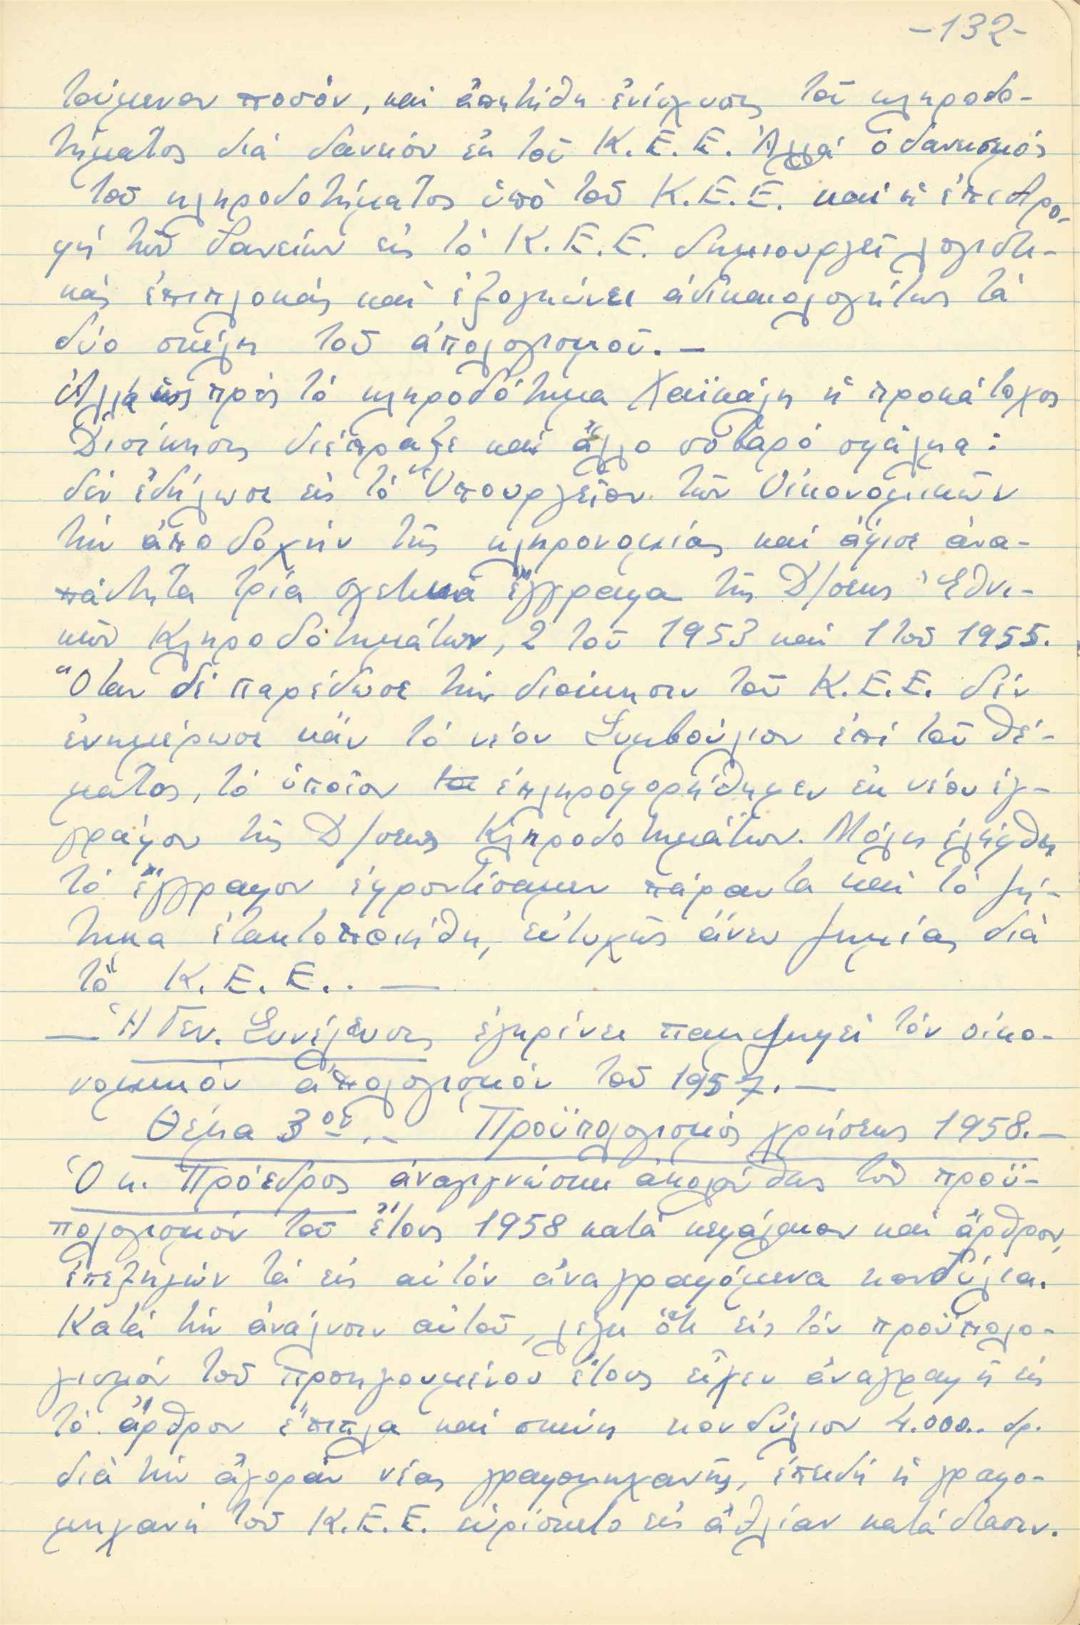 -132-
τούμενον ποσόν, καί ἀπῃτήθη ἐνίσχυσις τοῦ κληροδο-
τήματος διά δανείων ἐκ τοῦ Κ.Ε.Ε. Ἀλλά ὁ δανεισμός
τοῦ κληροδοτήματος ὑπό τοῦ Κ.Ε.Ε. καί ἡ ἐπιστρο-
φή τῶν δανείων εἰς τό Κ.Ε.Ε. δημιουργεῖ λογιστι-
κάς ἐπιπλοκάς καί ἐξογκώνει ἀδικαιολογήτως τά
δύο σκέλη τοῦ ἀπολογισμοῦ.-
Ἀλλά ὡς πρός τό κληροδότημα Χαϊκάλη ἡ προκάτοχος
Διοίκησις διέπραξε καί ἄλλο σοβαρό σφάλμα:
δέν ἐδήλωσε εἰς τό Ὑπουργεῖον τῶν Οἰκονομικῶν
τήν ἀποδοχήν τῆς κληρονομίας καί ἄφισε ἀνα-
πάντητα τρία σχετικά ἔγγραφα τῆς Δ/σεως Ἐθνι-
κῶν Κληροδοτημάτων, 2 τοῦ 1953 καί 1 τοῦ 1955.
Ὅταν δέ παρέδωσε τήν διοίκησιν τοῦ Κ.Ε.Ε. δέν
ἐνημέρωσε κἄν τό νέον Συμβούλιον ἐπί τοῦ θέ-
ματος, τό ὁποῖον ἐπληροφορήθημεν ἐκ νέου ἐγ-
γράφου τῆς Δ/σεως Κληροδοτημάτων. Μόλις ἐλήφθη
τό ἔγγραφον ἐφροντίσαμεν πάραυτα καί τό ζή-
τημα ἐτακτοποιήθη, εὐτυχῶς ἄνευ ζημίας διά
τό Κ.Ε.Ε..-
- Ἡ Γεν. Συνέλευσις ἐγκρίνει παμψηφεί τόν οἰκο-
νομικόν ἀπολογισμόν τοῦ 1957.-
Θέμα 3ον.- Προϋπολογισμός χρήσεως 1958.-
Ὁ κ. Πρόεδρος ἀναγιγνώσκει ἀκολούθως τόν προϋ-
πολογισμόν τοῦ ἔτους 1958 κατά κεφάλαιον καί ἄρθρον,
ἐπεξηγῶν τά εἰς αὐτόν ἀναγραφόμενα κονδύλια.
Κατά τήν ἀνάλυσιν αὐτοῦ, λέγει ὅτι εἰς τόν προϋπολο-
γισμόν τοῦ προηγουμένου ἔτους εἶχεν ἀναγραφῆ εἰς
τό ἄρθρον ἔπιπλα καί σκεύη κονδύλιον 4.000.. δρ.
διά τήν ἀγοράν νέας γραφομηχανῆς, ἐπειδή ἡ γραφο-
μηχανή τοῦ Κ.Ε.Ε. εὑρίσκετο εἰς ἀθλίαν κατάστασιν.